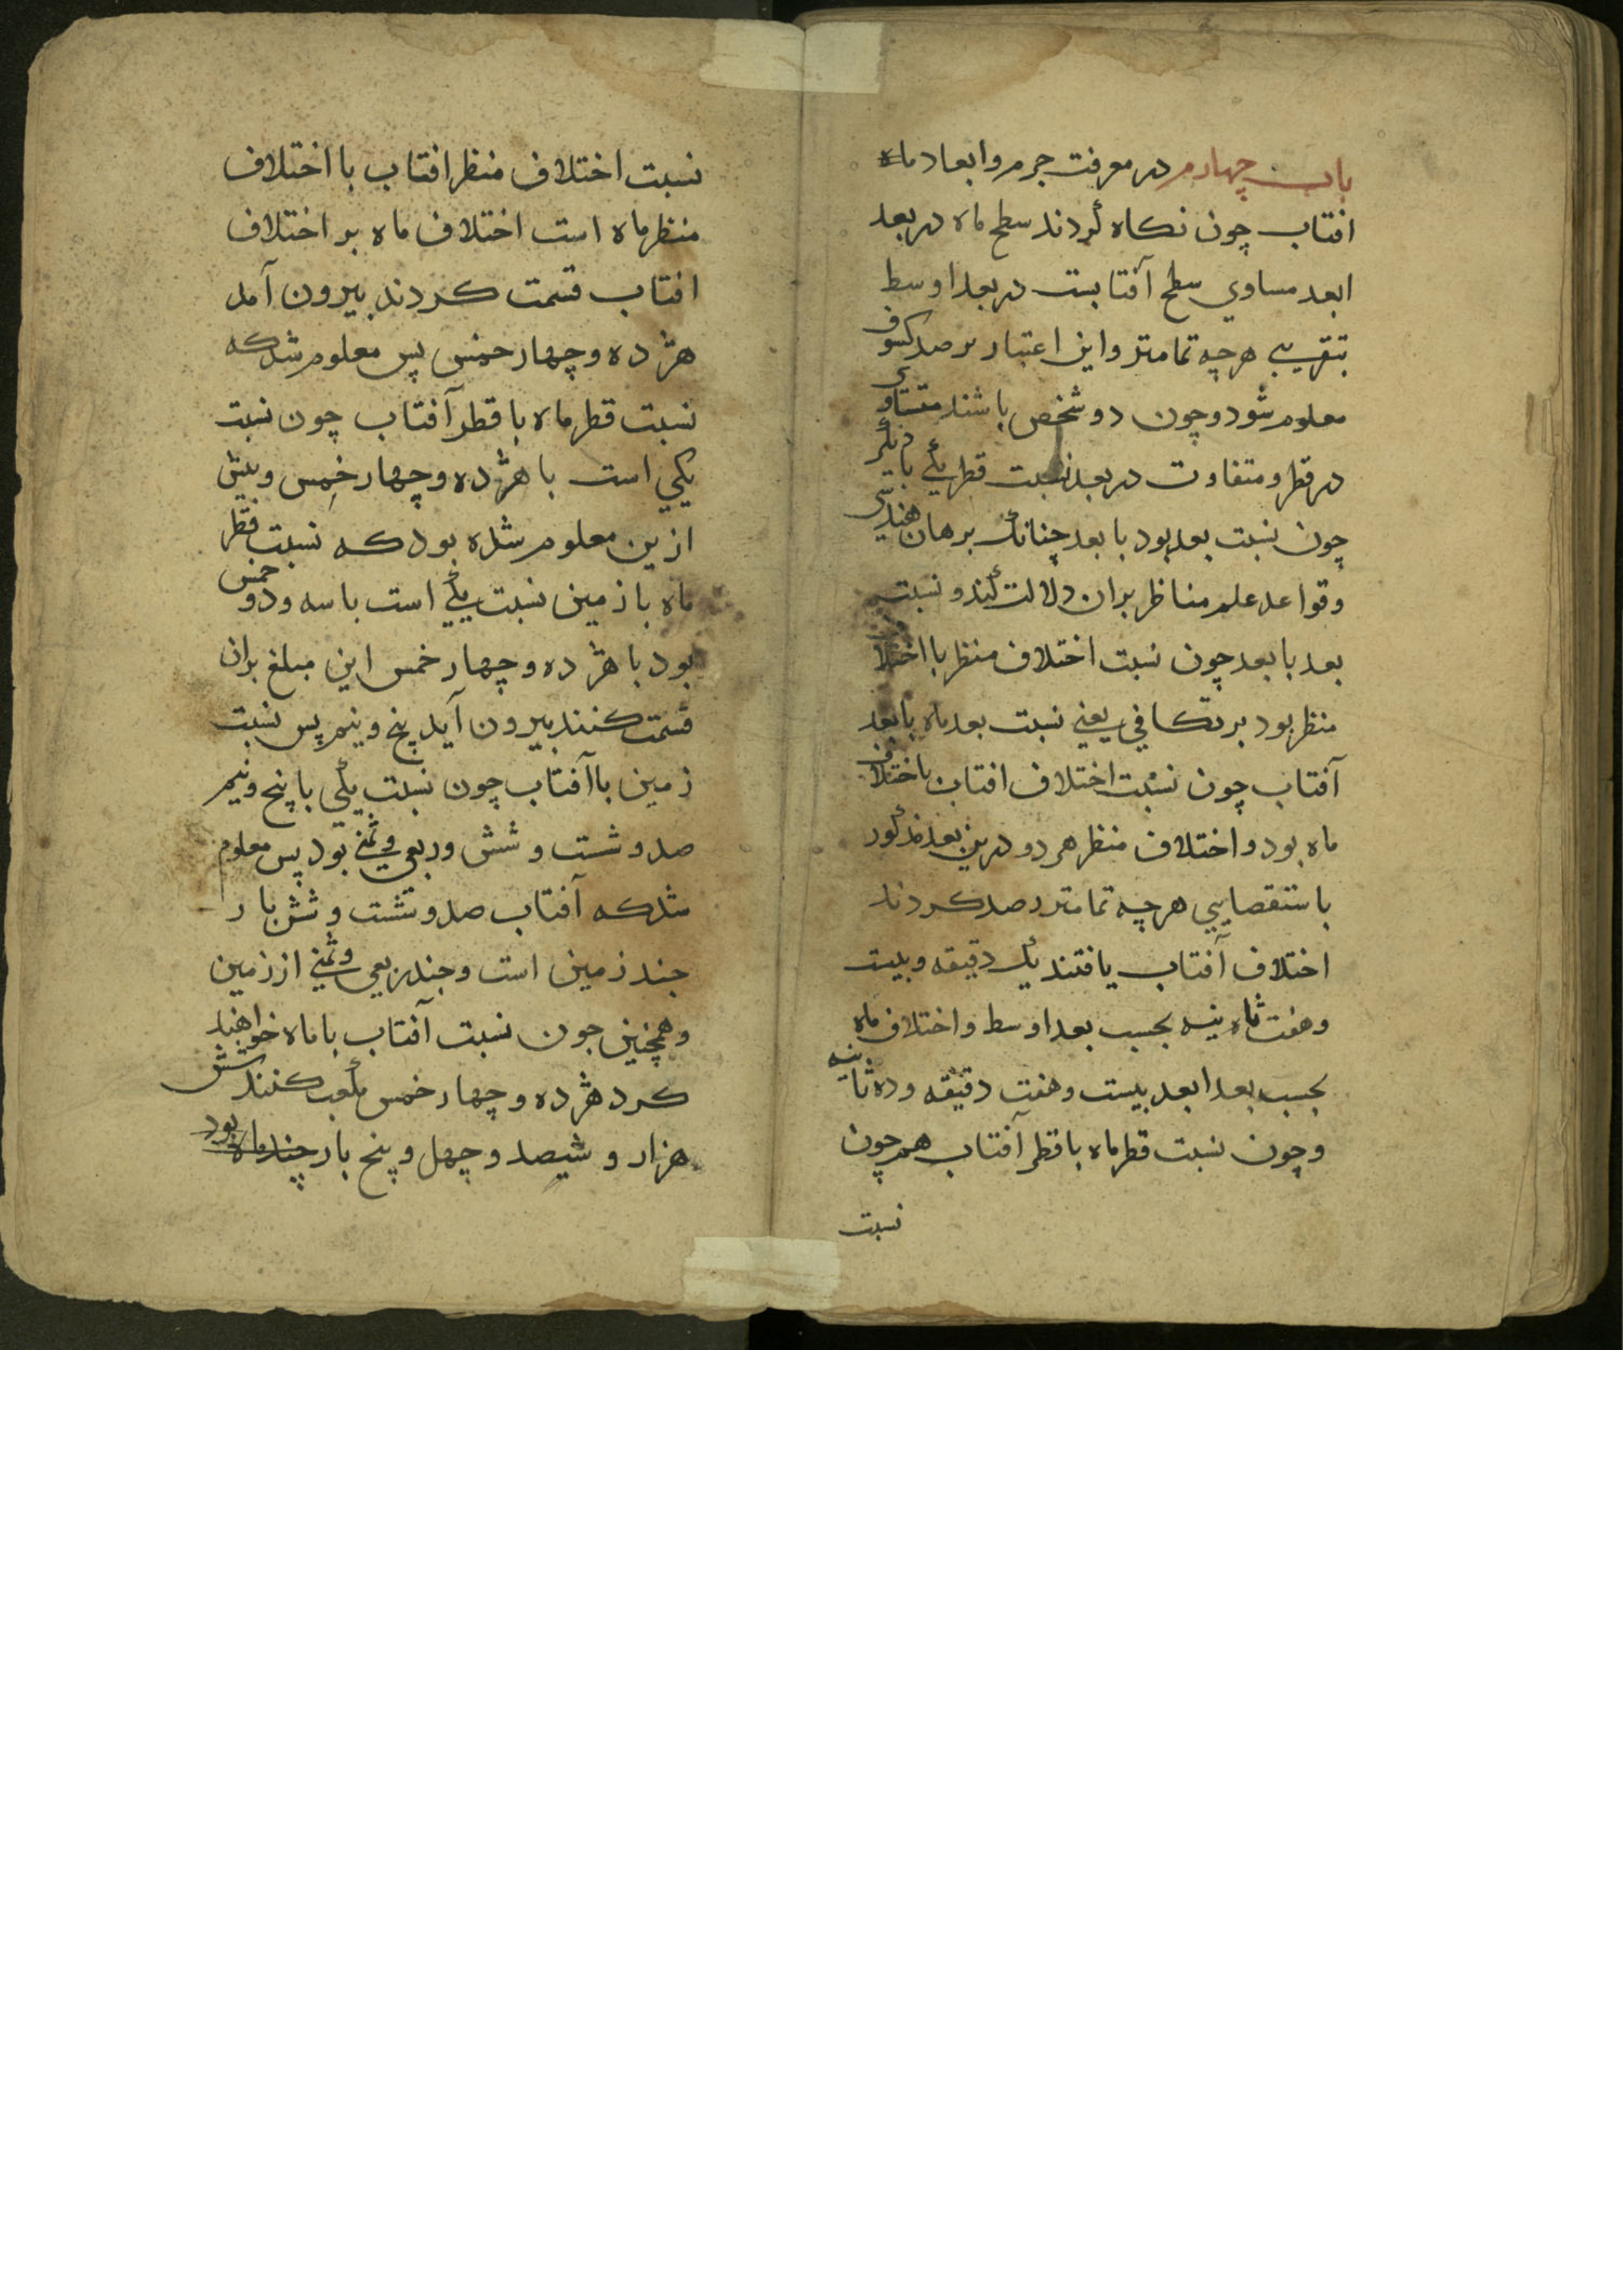 باب چهارم در معرفت جرم و ابعاد ماه
افتاب چون نکاه کردند سطح ماه در بعد
ابعد مساوي سطح آفتابست در بعد اوسط
بتقریبی هرچه تمامتر و این اعتبار برصد کسوف
معلوم شود و چون دو شخص باشند متساوی
در قطر و متفاوت در بعد نسبت قطر یکی با دیگر
چون نسبت بعد بود با بعد چنانک برهان هندسی
و قواعد علم مناظر بران دلالت کند و نسبت
بعد با بعد چون نسبت اختلاف منظر با اختلا
منظر بود بر تکافی یعنی نسبت بعد ماه با بعد
آفتاب چون نسبت اختلاف افتاب باختلاف
ماه بود و اختلاف منظر هر دو درین بعد مذکور
باستقصایی هرچه تمامتر رصد کردند
اختلاف آفتاب یافتند یک دقیقه و بیست
و هفت ثانیه بحسب بعد اوسط و اختلاف ماه
بحسب بعد ابعد بیست و هفت دقیقه و ده ثانیه
و چون نسبت قطر ماه با قطر آفتاب هم چون
نسبت
نسبت اختلاف منظر افتاب با اختلاف
منظر ماه است اختلاف ماه بر اختلاف
افتاب قسمت کردند بیرون آمد
هژده و چهار خمس پس معلوم شد که
نسبت قطر ماه با قطر آفتاب چون نسبت
یکي است با هژده و چهار خمس و پیش
ازین معلوم شده بود که نسبت قطر
ماه با زمین نسبت یکی است با سه و دو خمس
بود با هژده و چهار خمس این مبلغ بران
قسمت کنند بیرون آید پنج و نیم پس نسبت
زمین با آفتاب چون نسبت یکی با پنج و نیم
صد و شست و شش و ربعی و ثمنی بود پس معلوم
شد که آفتاب صد و شست و شش بار
چند زمین است و چند ربعی و ثمنی از زمین
و همچنین چون نسبت آفتاب با ماه خواهند
کرد هژده و چهار خمس مکعب کنند شش
هزار و شیصد و چهل و پنج بار چند ماه بود